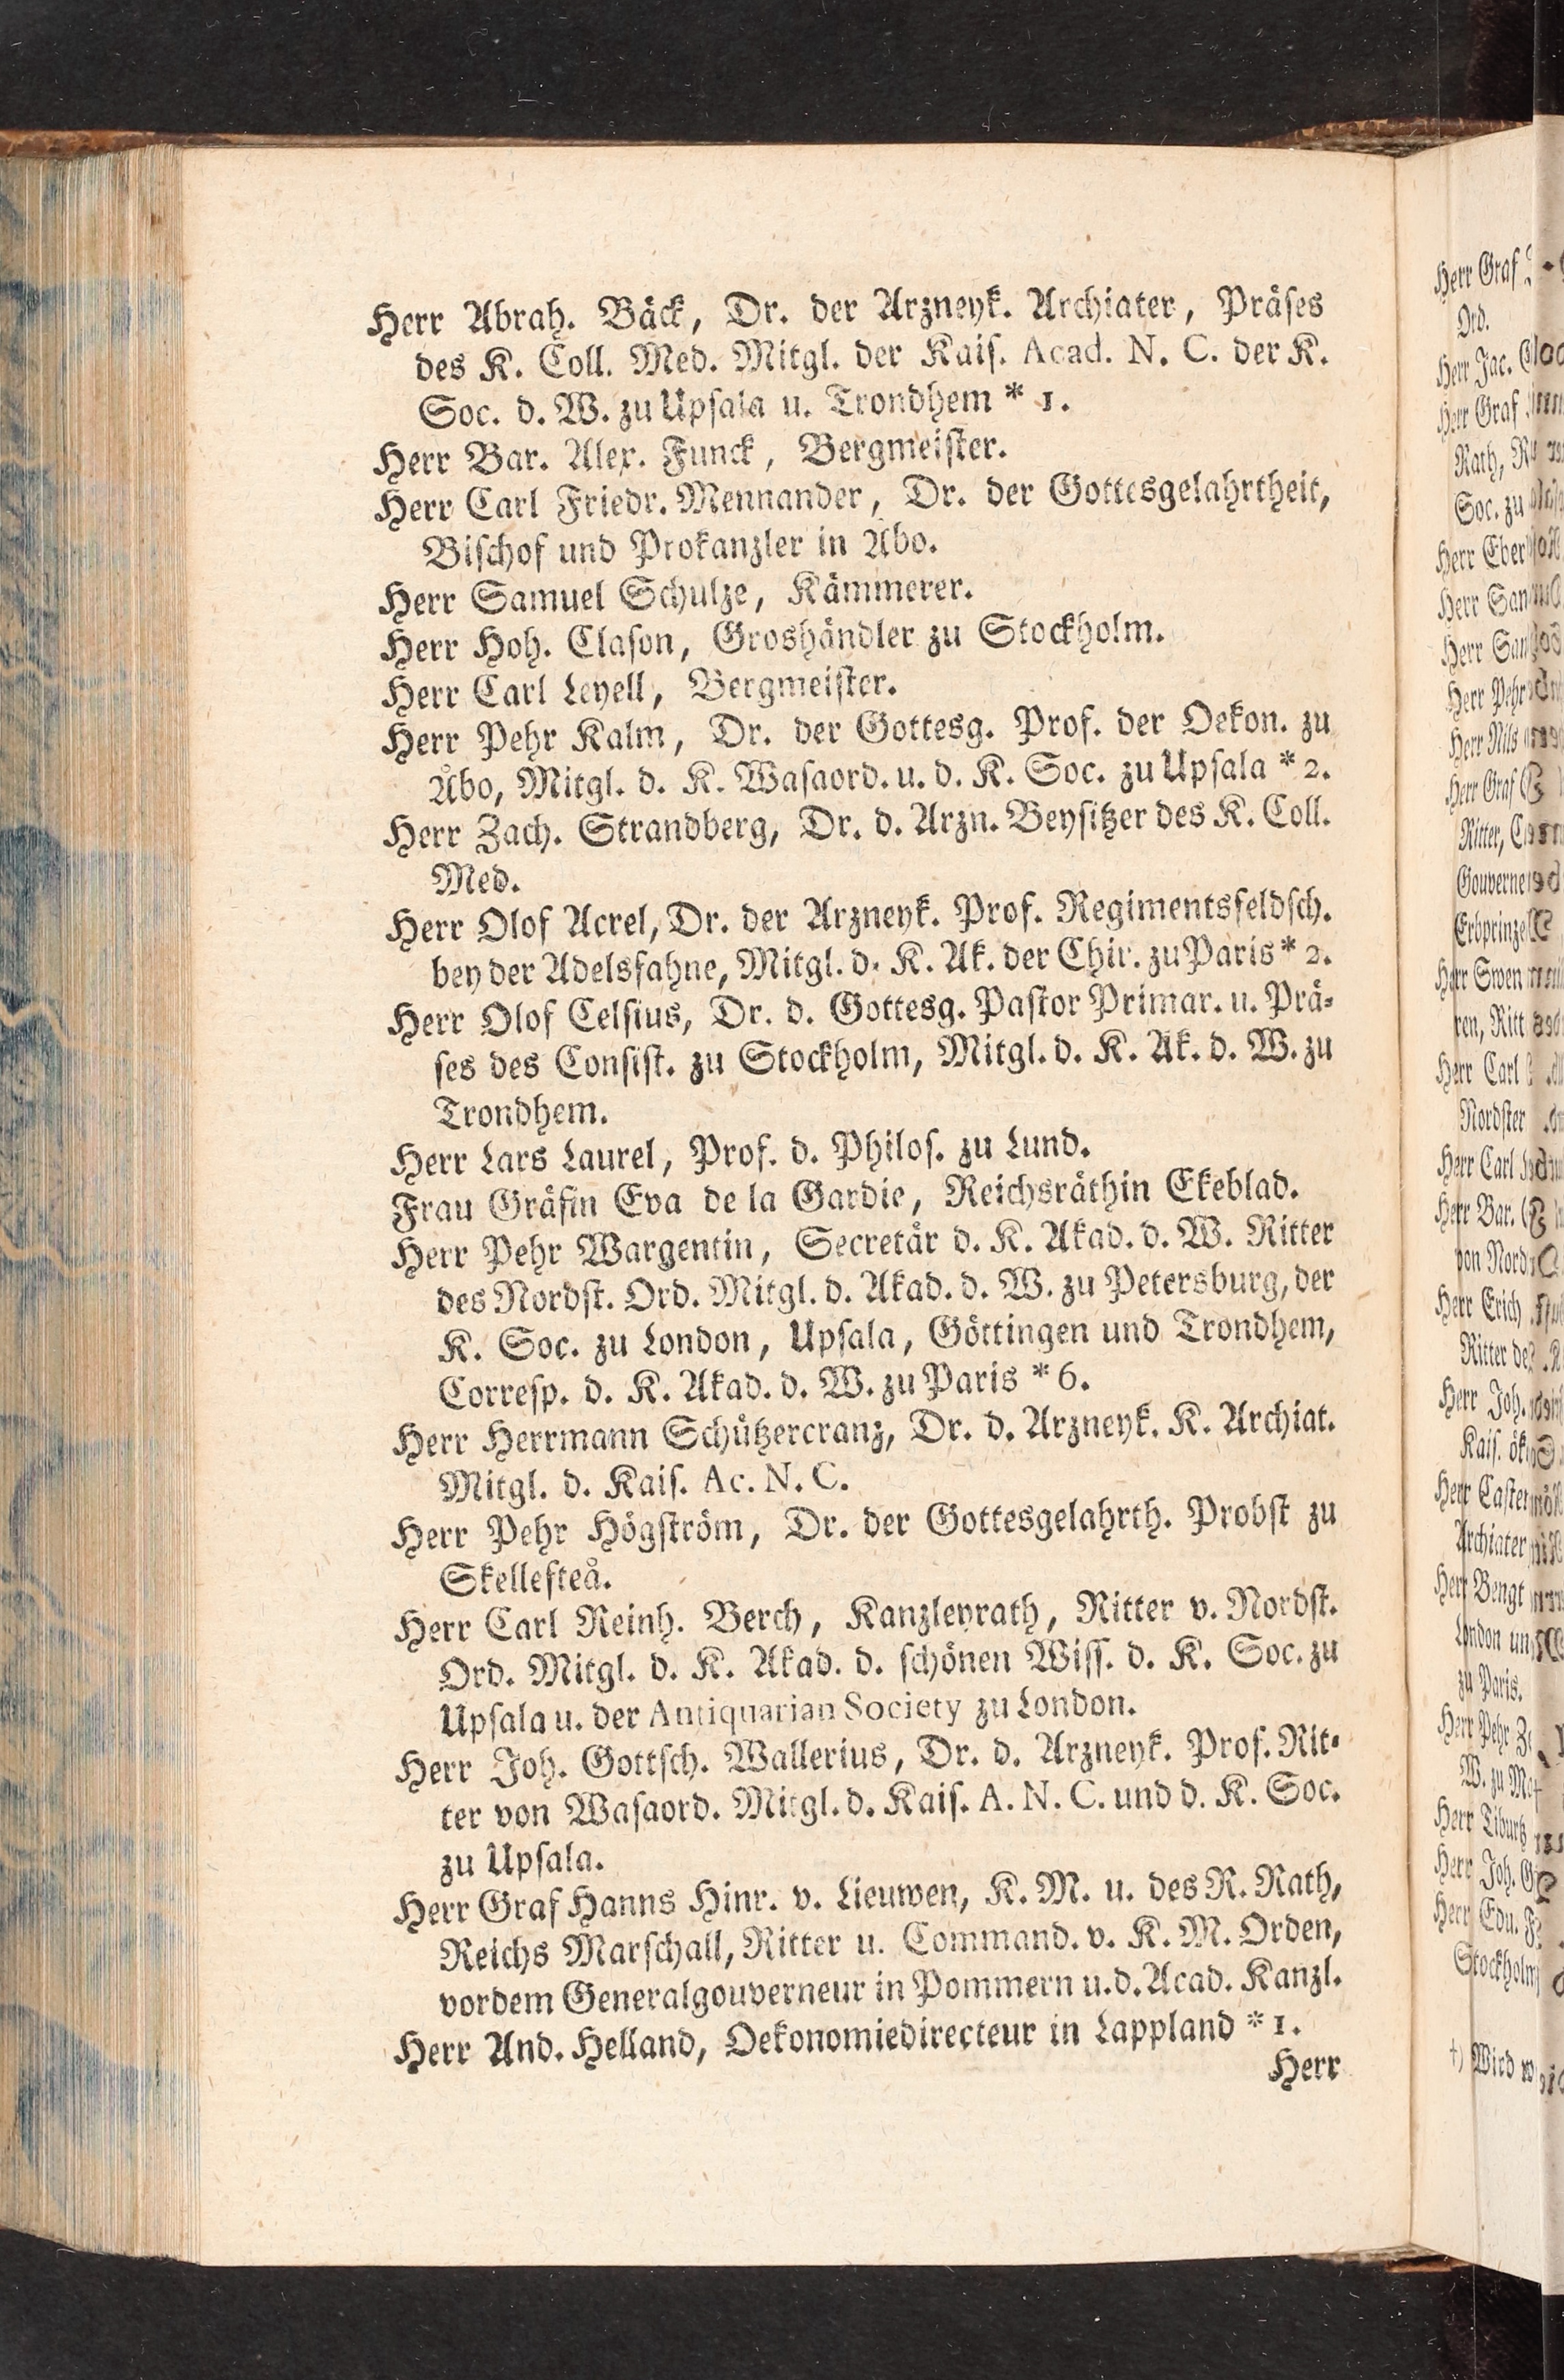 Herr Abrah. Bäck, Dr. der Arzneyk. Archiater, Präses
des K. Coll. Med. Mitgl. der Kais. Acad. N. C. der K.
Soc. d. W. zu Upsala u. Trondhem * 1.
Herr Bar. Alex. Funck, Bergmeister.
Herr Carl Friedr. Mennander, Dr. der Gottesgelahrtheit,
Bischof und Prokanzler in Åbo.
Herr Samuel Schulze, Kämmerer.
Herr Hoh. Clason, Groshändler zu Stockholm.
Herr Carl Leyell, Bergmeister.
Herr Pehr Kalm, Dr. der Gottesg. Prof. der Oekon. zu
Åbo, Mitgl. d. K. Wasaord. u. d. K. Soc. zu Upsala * 2.
Herr Zach. Strandberg, Dr. d. Arzn. Beysitzer des K. Coll.
Med.
Herr Olof Acrel, Dr. der Arzneyk. Prof. Regimentsfeldsch.
bey der Adelsfahne, Mitgl. d. K. Ak. der Chir. zu Paris * 2.
Herr Olof Celsius, Dr. d. Gottesg. Pastor Primar. u. Prä-
ses des Consist. zu Stockholm, Mitgl. d. K. Ak. d. W. zu
Trondhem.
Herr Lars Laurel, Prof. d. Philos. zu Lund.
Frau Gräfin Eva de la Gardie, Reichsräthin Ekeblad.
Herr Pehr Wargentin, Secretär d. K. Akad. d. W. Ritter
des Nordst. Ord. Mitgl. d. Akad. d. W. zu Petersburg, der
K. Soc. zu London, Upsala, Göttingen und Trondhem,
Corresp. d. K. Akad. d. W. zu Paris * 6.
Herr Herrmann Schützercranz, Dr. d. Arzneyk. K. Archiat.
Mitgl. d. Kais. Ac. N. C.
Herr Pehr Högström, Dr. der Gottesgelahrth. Probst zu
Skellefteå.
Herr Carl Reinh. Berch, Kanzleyrath, Ritter v. Nordst.
Ord. Mitgl. d. K. Akad. d. schönen Wiss. d. K. Soc. zu
Upsala u. der Antiquarian Society zu London.
Herr Joh. Gottsch. Wallerius, Dr. d. Arzneyk. Prof. Rit-
ter von Wasaord. Mitgl. d. Kais. A. N. C. und d. K. Soc.
zu Upsala.
Herr Graf Hanns Hinr. v. Lieuwen, K. M. u. des R. Rath,
Reichs Marschall, Ritter u. Command. v. K. M. Orden,
vordem Generalgouverneur in Pommern u. d. Acad. Kanzl.
Herr And. Helland, Oekonomiedirecteur in Lappland * 1.
Herr
Herr Graf
Ord.
Herr Jac.
Herr Graf
Rath,
Soc. zu
Herr
Herr
Herr
Herr Pehr
Herr Nils
Herr Graf
Ritter,
Herr Swen
ren, Ritt
Herr Carl
Herr Carl
Herr Bar.
von Nord
Herr Erich
Ritter
Herr Joh.
Kais.
Herr
Archiater
Herr Bengt
London
zu Paris.
Herr Pehr
W. zu
Herr
Herr Joh.
Herr
Stockholm
†) Wird